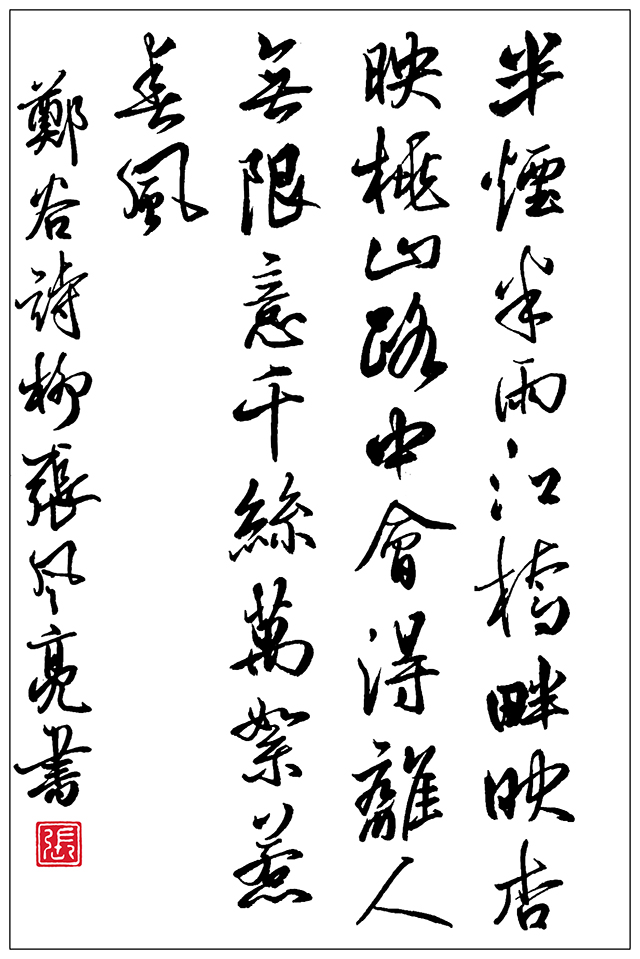 半煙半雨江橋畔映杏
映桃山路中會得離人
無限意千絲萬絮惹
春風
鄭谷詩柳張風亮書
張